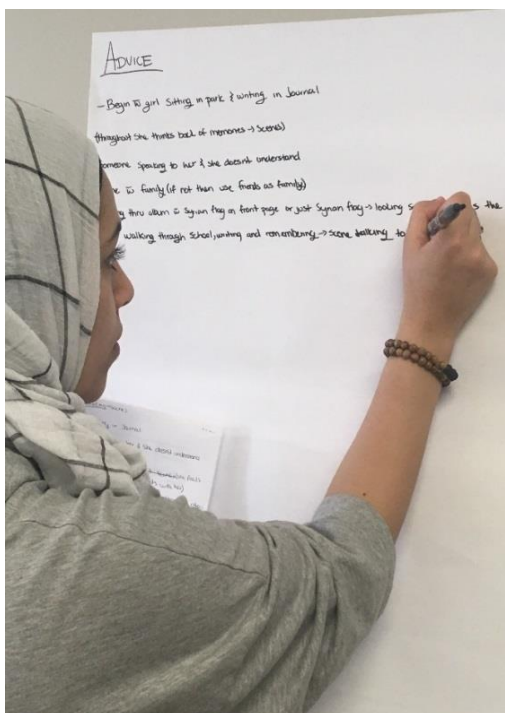 ADVICE
- Begin w̄ girl sitting in park & writing in Journal
(throughout she thinks back of memories → scenes)
someone speaking to her & she doesn't understand
w̄ family (if not then use friends as family)
thru album w̄ Syrian flag in front page or just Syrian flag → looking the
walking through school, writing and remembering → scene talking to
Journal
& she doesn't understand